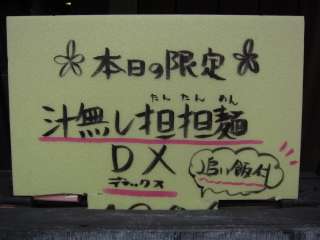 本日の限定
たん たん めん
汁無し担担麺
DX
デラックス
追い飯付